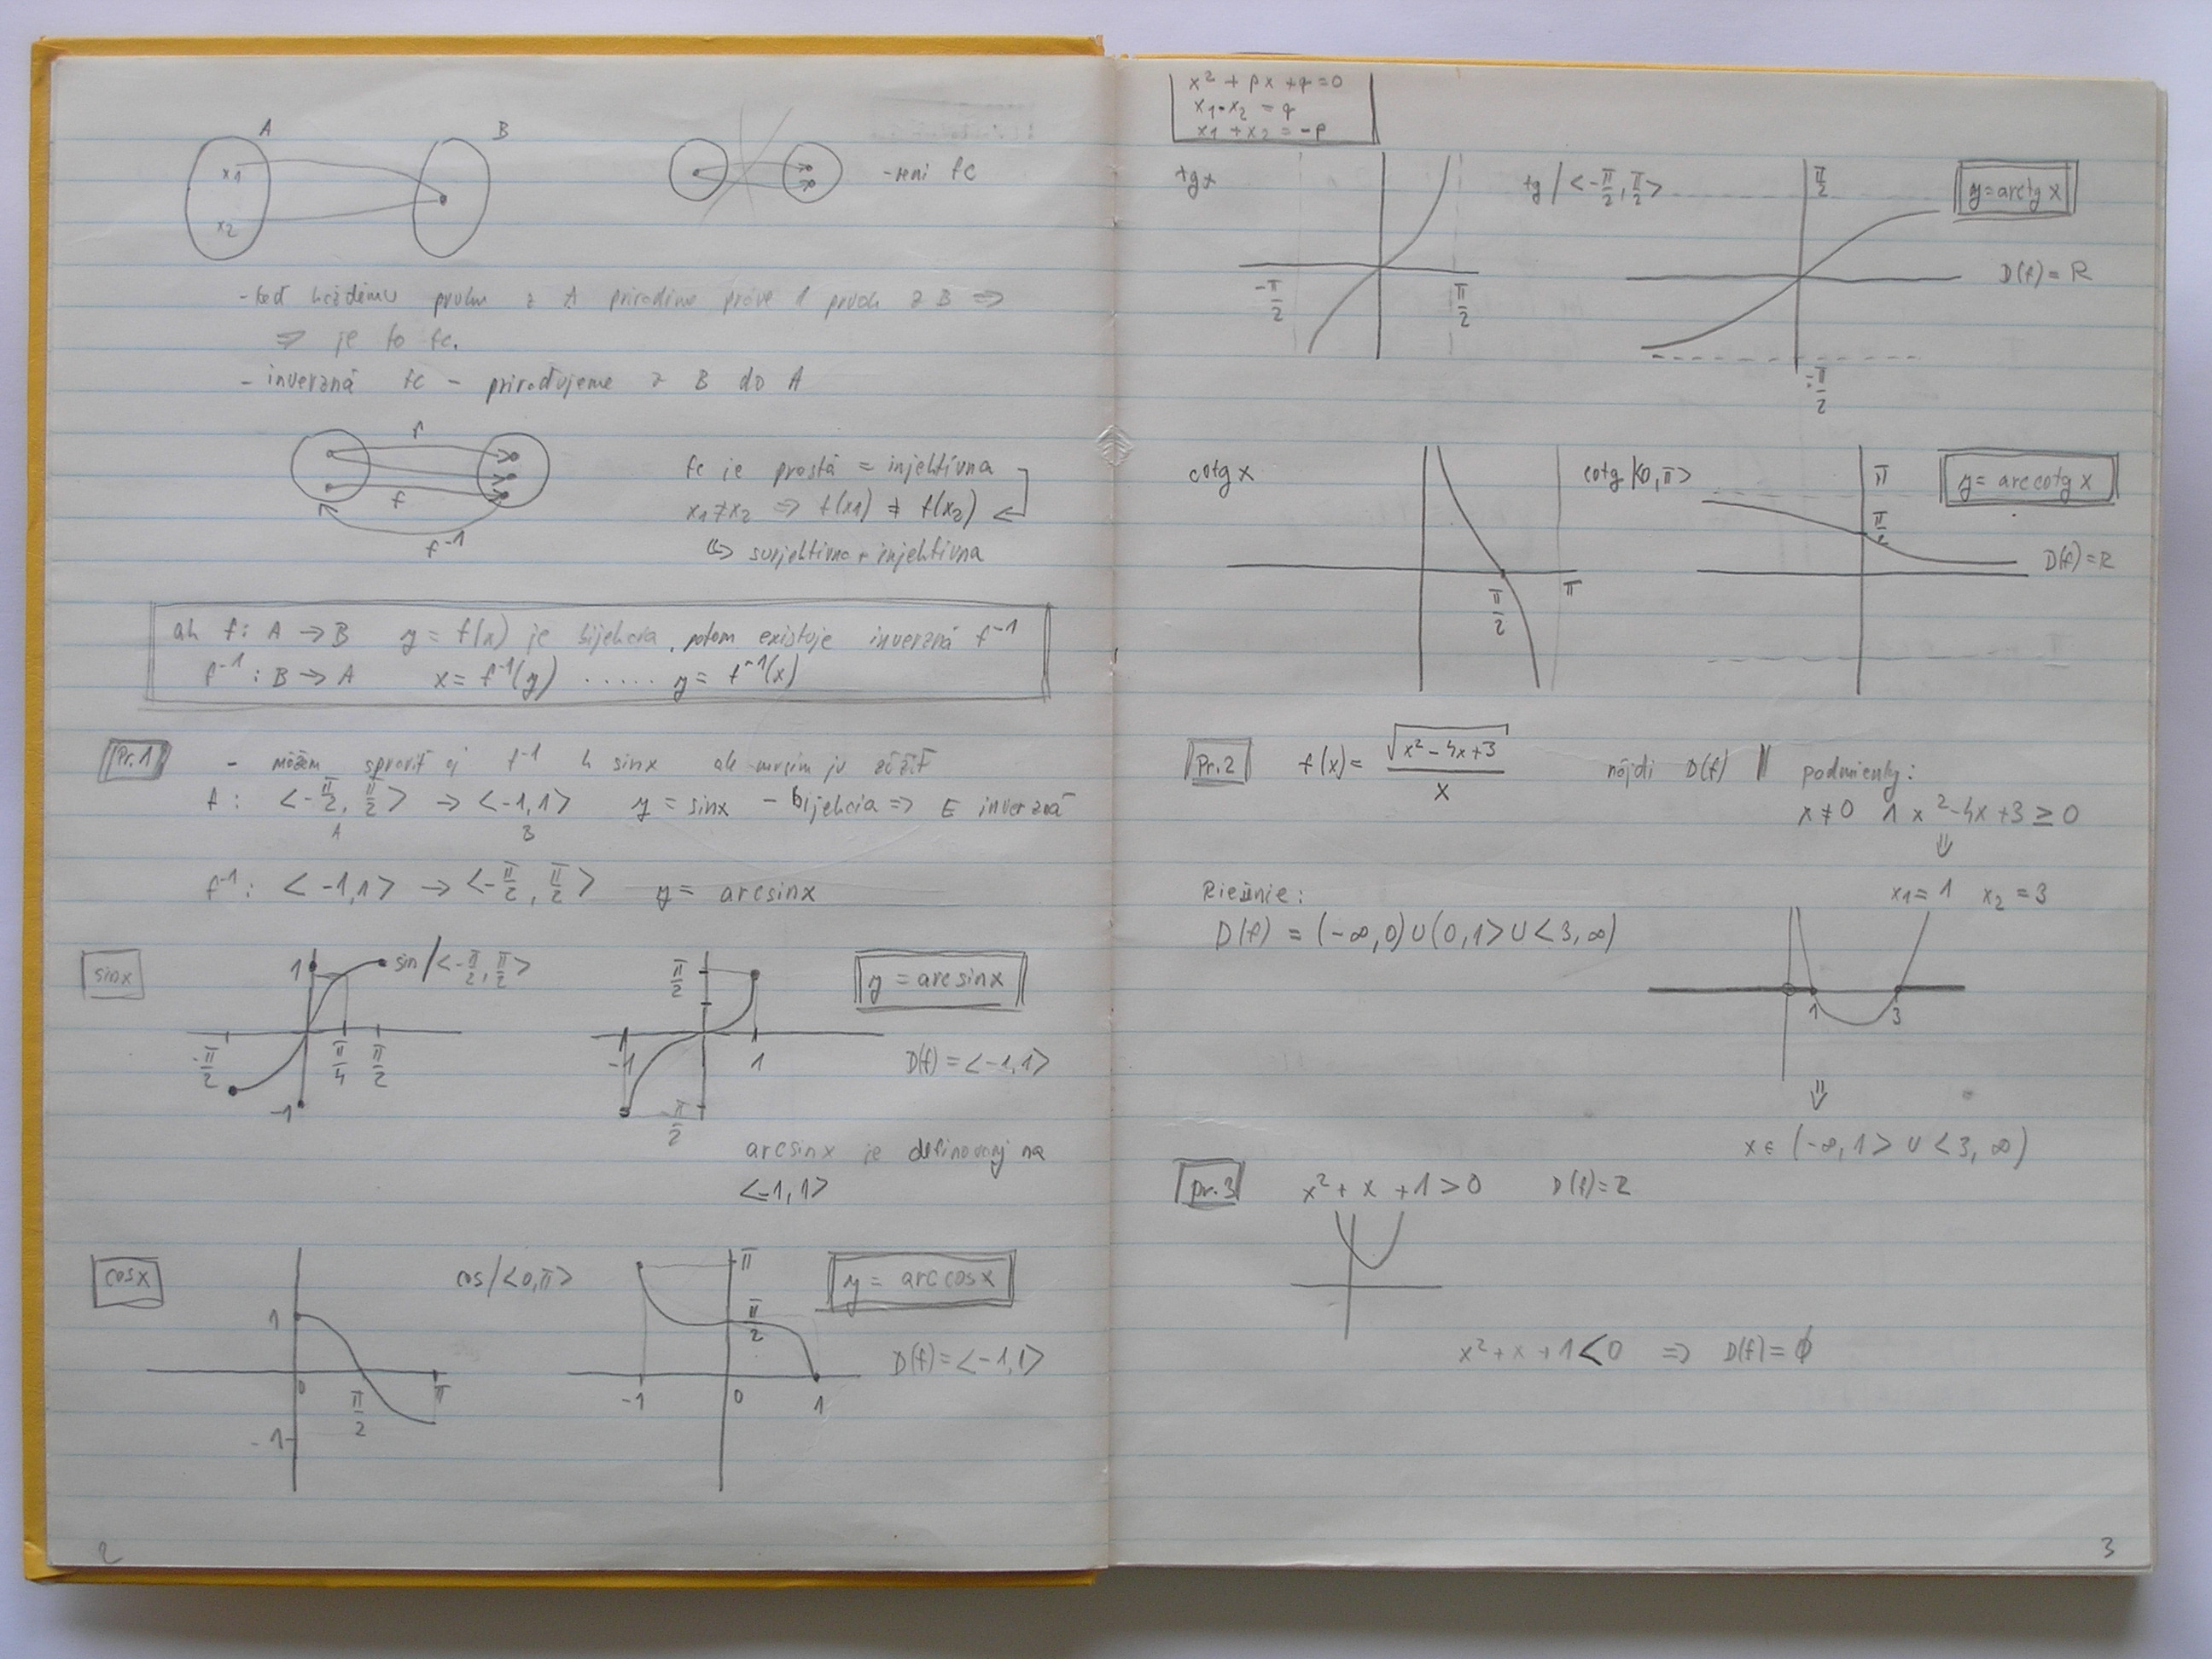 A B
x1
x2
- neni fc
- keď každému prvku z A priradíme práve 1 prvok z B =>
=> je to fc.
- inverzná fc - priraďujeme z B do A
f
f
f⁻¹
fc je prostá = injektívna
x1 ≠ x2 => f(x1) ≠ f(x2)
↳ surjektívna + injektívna
ak f: A → B y = f(x) je bijekcia, potom existuje inverzná f⁻¹
f⁻¹: B → A x = f⁻¹(y) ...... y = f⁻¹(x)
Pr.1 - môžem spraviť aj f⁻¹ k sinx ale musím ju zúžiť
f: <-π/2, π/2> → <-1,1> y = sinx - bijekcia => E inverzná
A B
f⁻¹: <-1,1> → <-π/2, π/2> y = arcsinx
sinx
1 sin/<-π/2, π/2>
-π/2 π/4 π/2
-1
π/2
-1 1
-π/2
y = arcsinx
D(f) = <-1,1>
arcsinx je definovaný na
<-1,1>
cosx
cos/<0,π>
1
0 π/2 π
-1
π
π/2
-1 0 1
y = arccosx
D(f) = <-1,1>
2
x² + px + q = 0
x1 · x2 = q
x1 + x2 = -p
tgx
-π/2 π/2
tg/<-π/2, π/2>
π/2
-π/2
y = arctg x
D(f) = R
cotg x
π/2 π
cotg/<0,π>
π
π/2
y = arccotg x
D(f) = R
Pr.2 f(x) = √(x² - 4x + 3) / x nájdi D(f) || podmienky:
x ≠ 0 ∧ x² - 4x + 3 ≥ 0
⇓
x1 = 1 x2 = 3
Riešnie:
D(f) = (-∞,0) ∪ (0,1> ∪ <3,∞)
1 3
⇓
x ∈ (-∞,1> ∪ <3,∞)
pr.3 x² + x + 1 > 0 D(f) = R
x² + x + 1 < 0 => D(f) = ∅
3